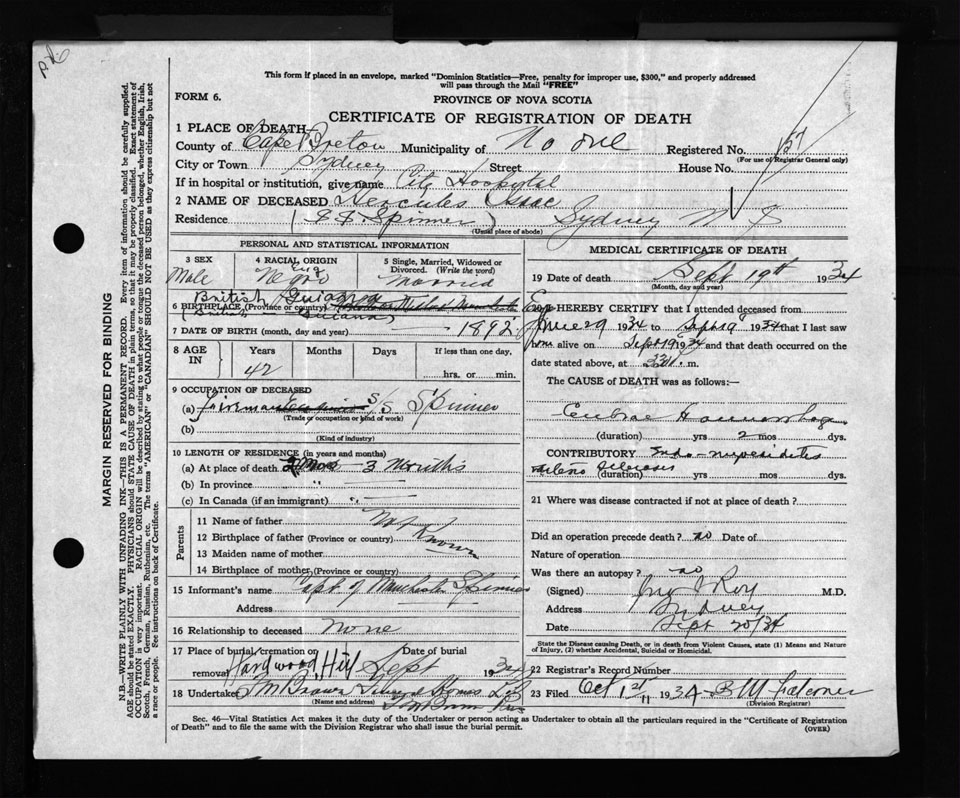 This form if placed in an envelope, marked "Dominion Statistics—Free, penalty for improper use, $300," and properly addressed
will pass through the Mail "FREE"
FORM 6.
PROVINCE OF NOVA SCOTIA
CERTIFICATE OF REGISTRATION OF DEATH
1 PLACE OF DEATH
County of Cape Breton Municipality of Registered No. 57
(For use of Registrar General only)
City or Town Sydney Street House No.
If in hospital or institution, give name City Hospital
2 NAME OF DECEASED Hercules Isaac
Residence (S.S. Spinner) Sydney N S
(Usual place of abode)
PERSONAL AND STATISTICAL INFORMATION
3 SEX
Male
4 RACIAL ORIGIN
Negro
5 Single, Married, Widowed or
Divorced. (Write the word)
Married
British Guiana
6 BIRTHPLACE (Province or country)
7 DATE OF BIRTH (month, day and year) 1892
8 AGE
IN
Years
42
Months
Days
If less than one day,
hrs. or min.
9 OCCUPATION OF DECEASED
(a) Fireman S/S Spinner
(Trade or occupation or kind of work)
(b)
(Kind of industry)
10 LENGTH OF RESIDENCE (in years and months)
(a) At place of death 3 Months
(b) In province "
(c) In Canada (if an immigrant) "
Parents
11 Name of father Not
12 Birthplace of father (Province or country) Known
13 Maiden name of mother
14 Birthplace of mother
15 Informant's name Capt. of Manchester Spinner
Address
16 Relationship to deceased None
17 Place of burial, cremation or
removal Hardwood Hill
Date of burial
Sept 1934
18 Undertaker T M Brown Funeral Home Ltd
(Name and address)
MEDICAL CERTIFICATE OF DEATH
19 Date of death Sept 19th 1934
(Month, day and year)
20 I HEREBY CERTIFY that I attended deceased from
June 29 1934 to Sept 19 1934 that I last saw
him alive on Sept 19 1934 and that death occurred on the
date stated above, at m.
The CAUSE of DEATH was as follows:
(duration) yrs 2 mos dys.
CONTRIBUTORY
(duration) yrs mos dys.
21 Where was disease contracted if not at place of death?
Did an operation precede death? no Date of
Nature of operation
Was there an autopsy? no
(Signed) Roy M.D.
Address Sydney
Date Sept 20/34
State the Disease causing Death, or in death from Violent Causes, state (1) Means and
Nature of Injury, (2) whether Accidental, Suicidal or Homicidal.
22 Registrar's Record Number
23 Filed Oct 1st 1934 B M Falconer
(Division Registrar)
Sec. 46—Vital Statistics Act makes it the duty of the Undertaker or person acting as Undertaker to obtain all the particulars required in the "Certificate of Registration
of Death" and to file the same with the Division Registrar who shall issue the burial permit.
(OVER)
MARGIN RESERVED FOR BINDING
N.B.—WRITE PLAINLY WITH UNFADING INK—THIS IS A PERMANENT RECORD. Every item of information should be carefully supplied.
AGE should be stated EXACTLY. PHYSICIANS should STATE CAUSE OF DEATH in plain terms, so that it may be properly classified. Exact statement of
OCCUPATION is very important. RACIAL ORIGIN will be described by stating to what people or tongue the deceased person belonged, whether English, Irish,
Scotch, French, German, Russian, Ruthenian, etc. The terms "AMERICAN" or "CANADIAN" SHOULD NOT BE USED as they express citizenship but not
a race or people. See instructions on back of Certificate.